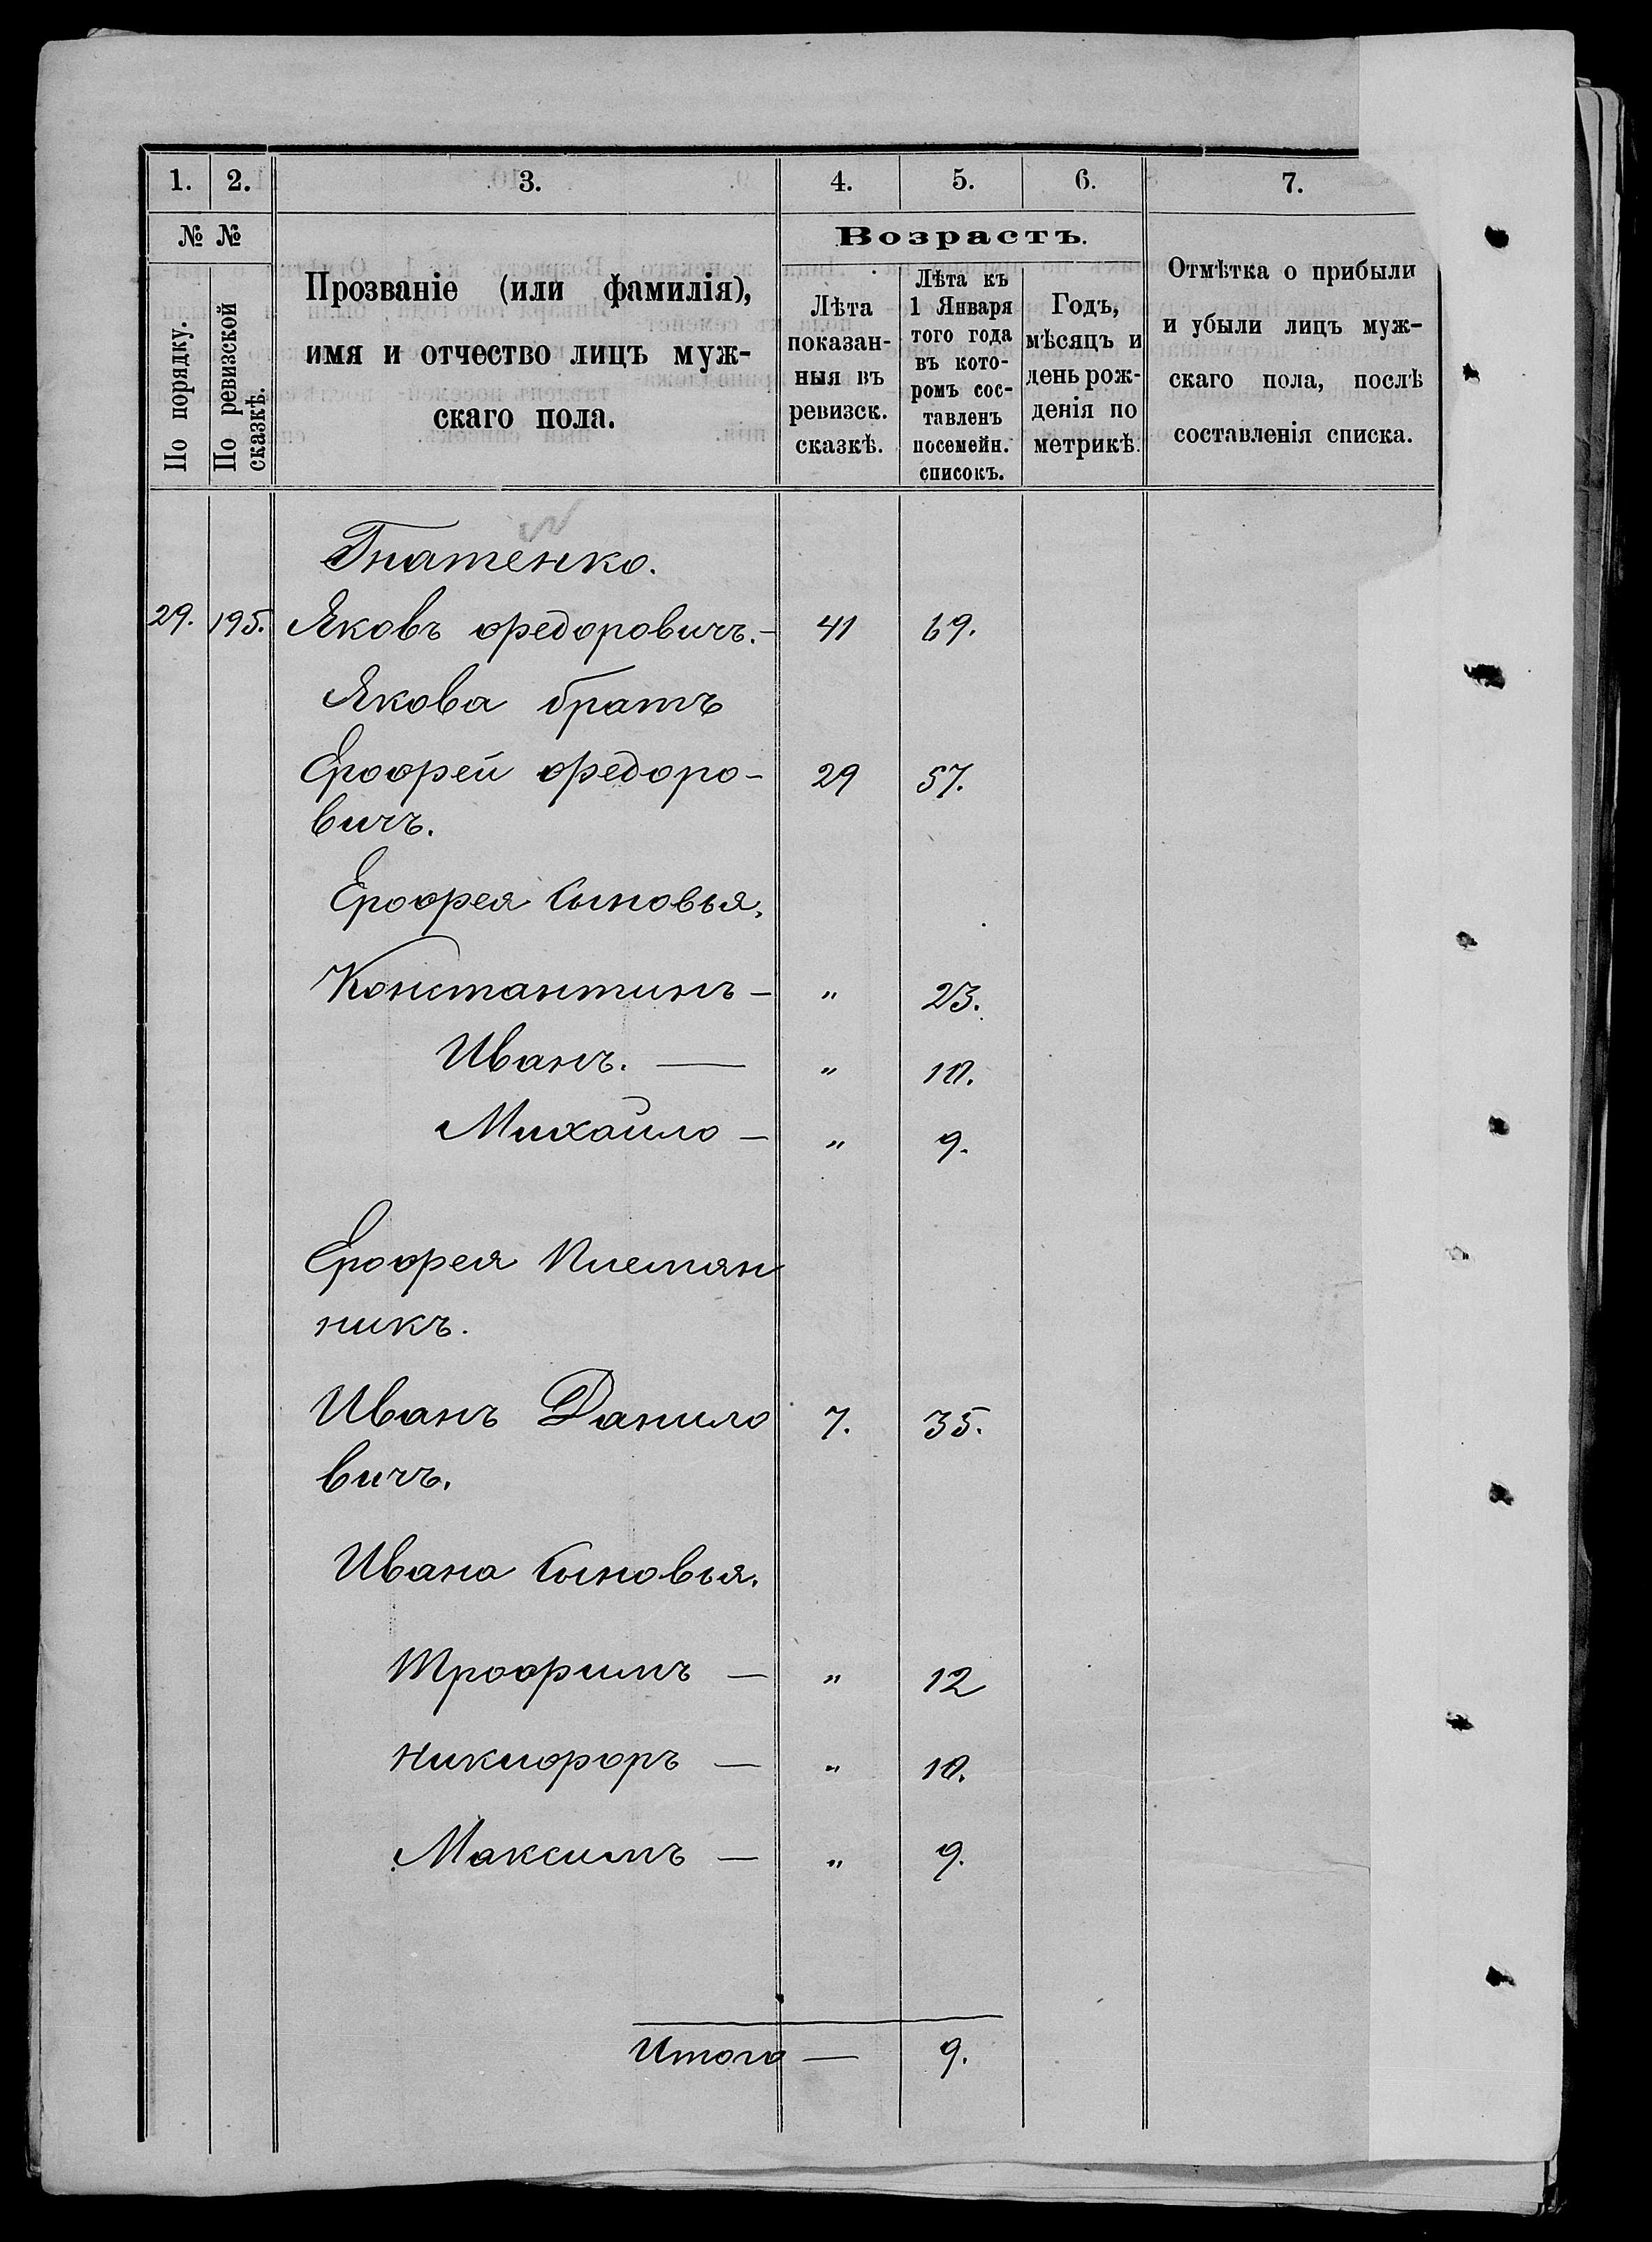 1. 2. 3. 4. 5. 6. 7.
№ №
По порядку.
По ревизской сказкѣ.
Прозваніе (или фамилія),
имя и отчество лицъ муж-
скаго пола.
Возрастъ.
Лѣта
показан-
ныя въ
ревизск.
сказкѣ.
Лѣта къ
1 Января
того года
въ кото-
ромъ сос-
тавленъ
посемейн.
списокъ.
Годъ,
мѣсяцъ и
день рож-
денія по
метрикѣ.
Отмѣтка о прибыли
и убыли лицъ муж-
скаго пола, послѣ
составленія списка.
Гнатенко.
29. 195. Яковъ Федоровичъ. - 41 69.
Якова братъ
Ерофей Федоро- 29 57.
вичъ.
Ерофея Сыновья.
Константинъ - " 23.
Иванъ. — " 10.
Михайло - " 9.
Ерофея Племян
никъ.
Иванъ Данило 7. 35.
вичъ.
Ивана Сыновья.
Трофимъ - " 12
Никифоръ - " 10.
Максимъ - " 9.
Итого — 9.